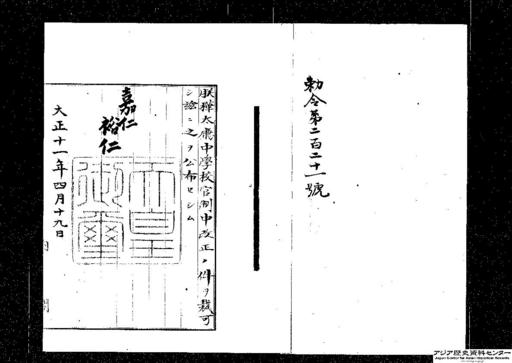 勅令第二百二十一號
朕樺太廳中學校官制中改正ノ件ヲ裁可
シ茲ニ之ヲ公布セシム
嘉仁
裕仁
天皇
御璽
大正十一年四月十九日
アジア歴史資料センター
Japan Center for Asian Historical Records